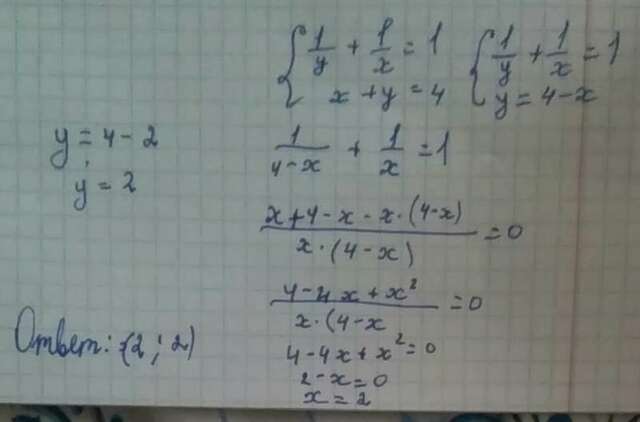 { 1/y + 1/x = 1
x + y = 4
{ 1/y + 1/x = 1
y = 4 - x
1/(4-x) + 1/x = 1
(x + 4 - x - x · (4-x)) / (x · (4-x)) = 0
(4 - 4x + x²) / (x · (4-x) = 0
4 - 4x + x² = 0
2 - x = 0
x = 2
y = 4 - 2
y = 2
Ответ: (2 ; 2)